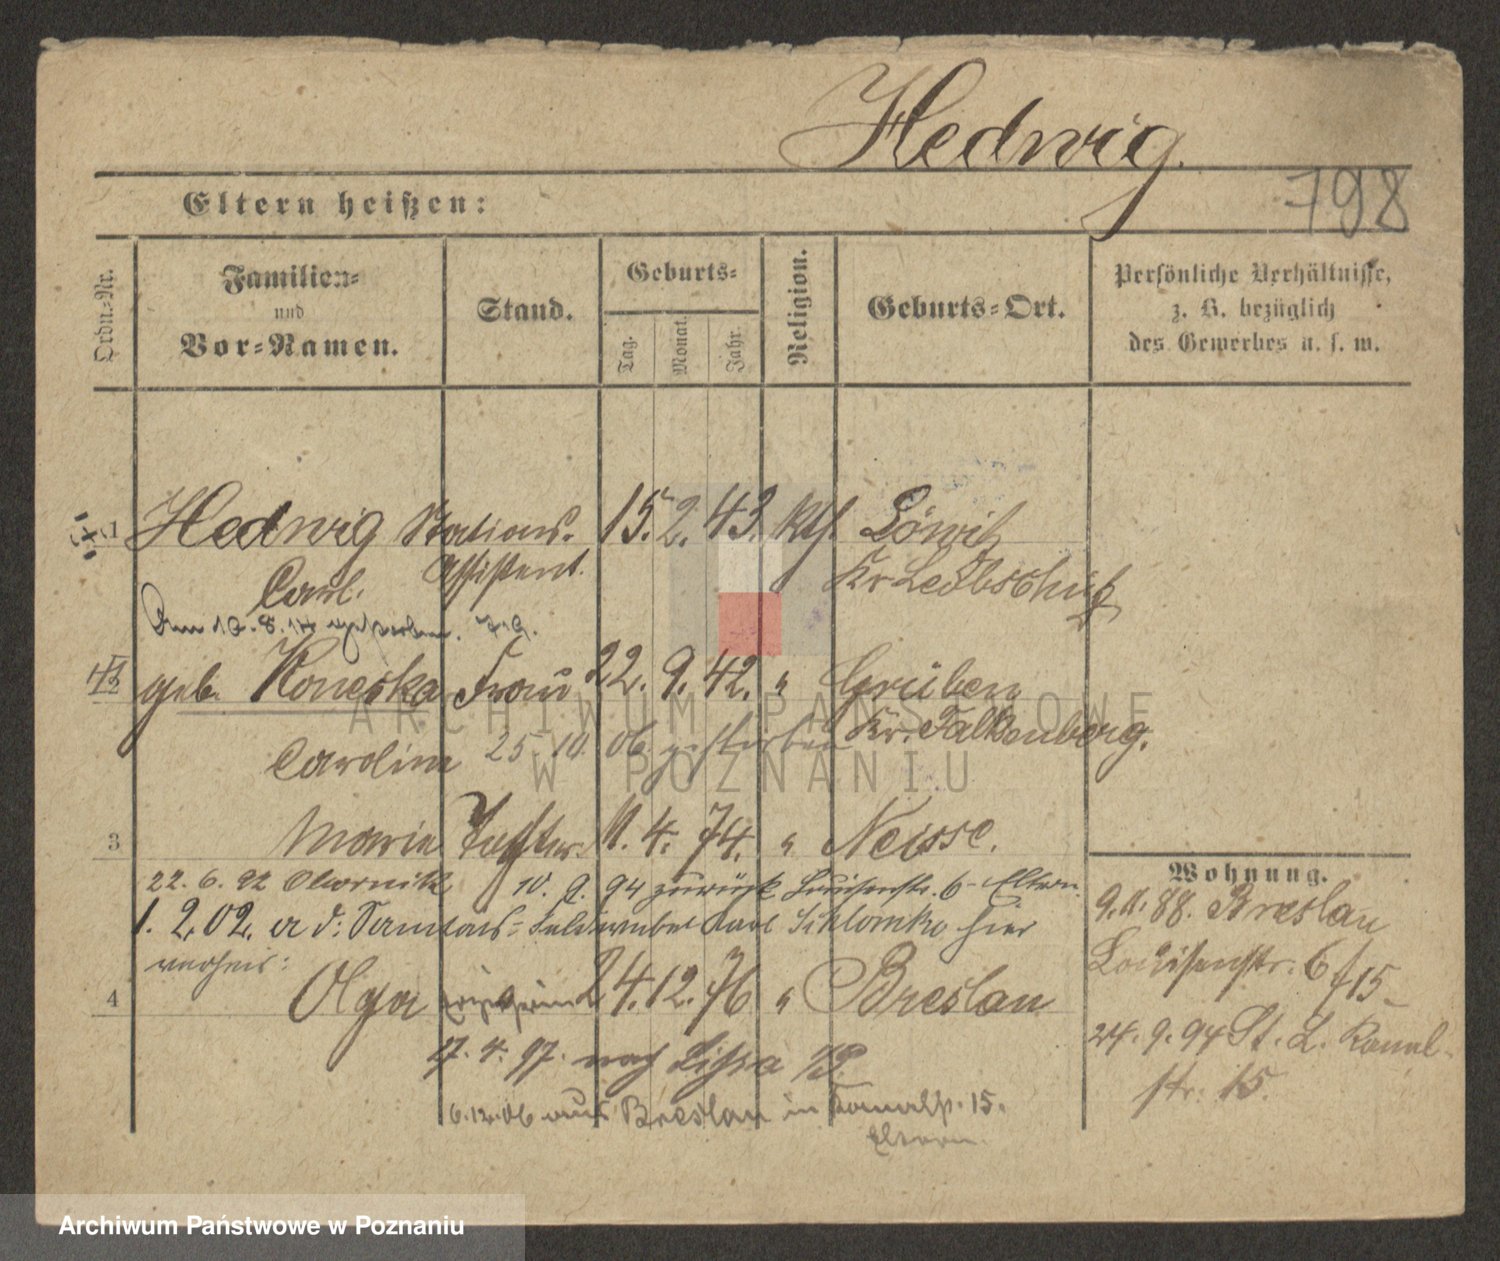 Hedwig.
798
Eltern heißen:
Ordn.-Nr.
Familien-
und
Vor-Namen.
Stand.
Geburts-
Tag.
Monat.
Jahr.
Religion.
Geburts-Ort.
Persönliche Verhältnisse,
z. B. bezüglich
des Gewerbes u. s. w.
1 Hedwig Stations- 15. 2. 43. kth. Löwitz
Carl. Assistent. Kr Leobschütz
Am 10. 8. 14 gestorben.
geb. Koneska Frau 22. 9. 42. " Grüben
Caroline 25 10. 06. gestorben Kr. Falkenberg.
3 Marie Tochter 11. 4. 74. " Neisse.
22. 6. 92 Obornik 10. 9. 94 zurück Luisenstr. 6 Eltern
1. 2. 02. a d: Karl hier
verheir:
4 Olga 24. 12. 76 " Breslau
17. 4. 97. nach Lissa
6.12.06 aus Breslau in Kanalstr. 15.
Eltern
Wohnung.
9. 11. 88. Breslau
Louisenstr. 6
24. 9. 94 St. L. Kanal-
str. 15.
ARCHIWUM PAŃSTWOWE
W POZNANIU
Archiwum Państwowe w Poznaniu